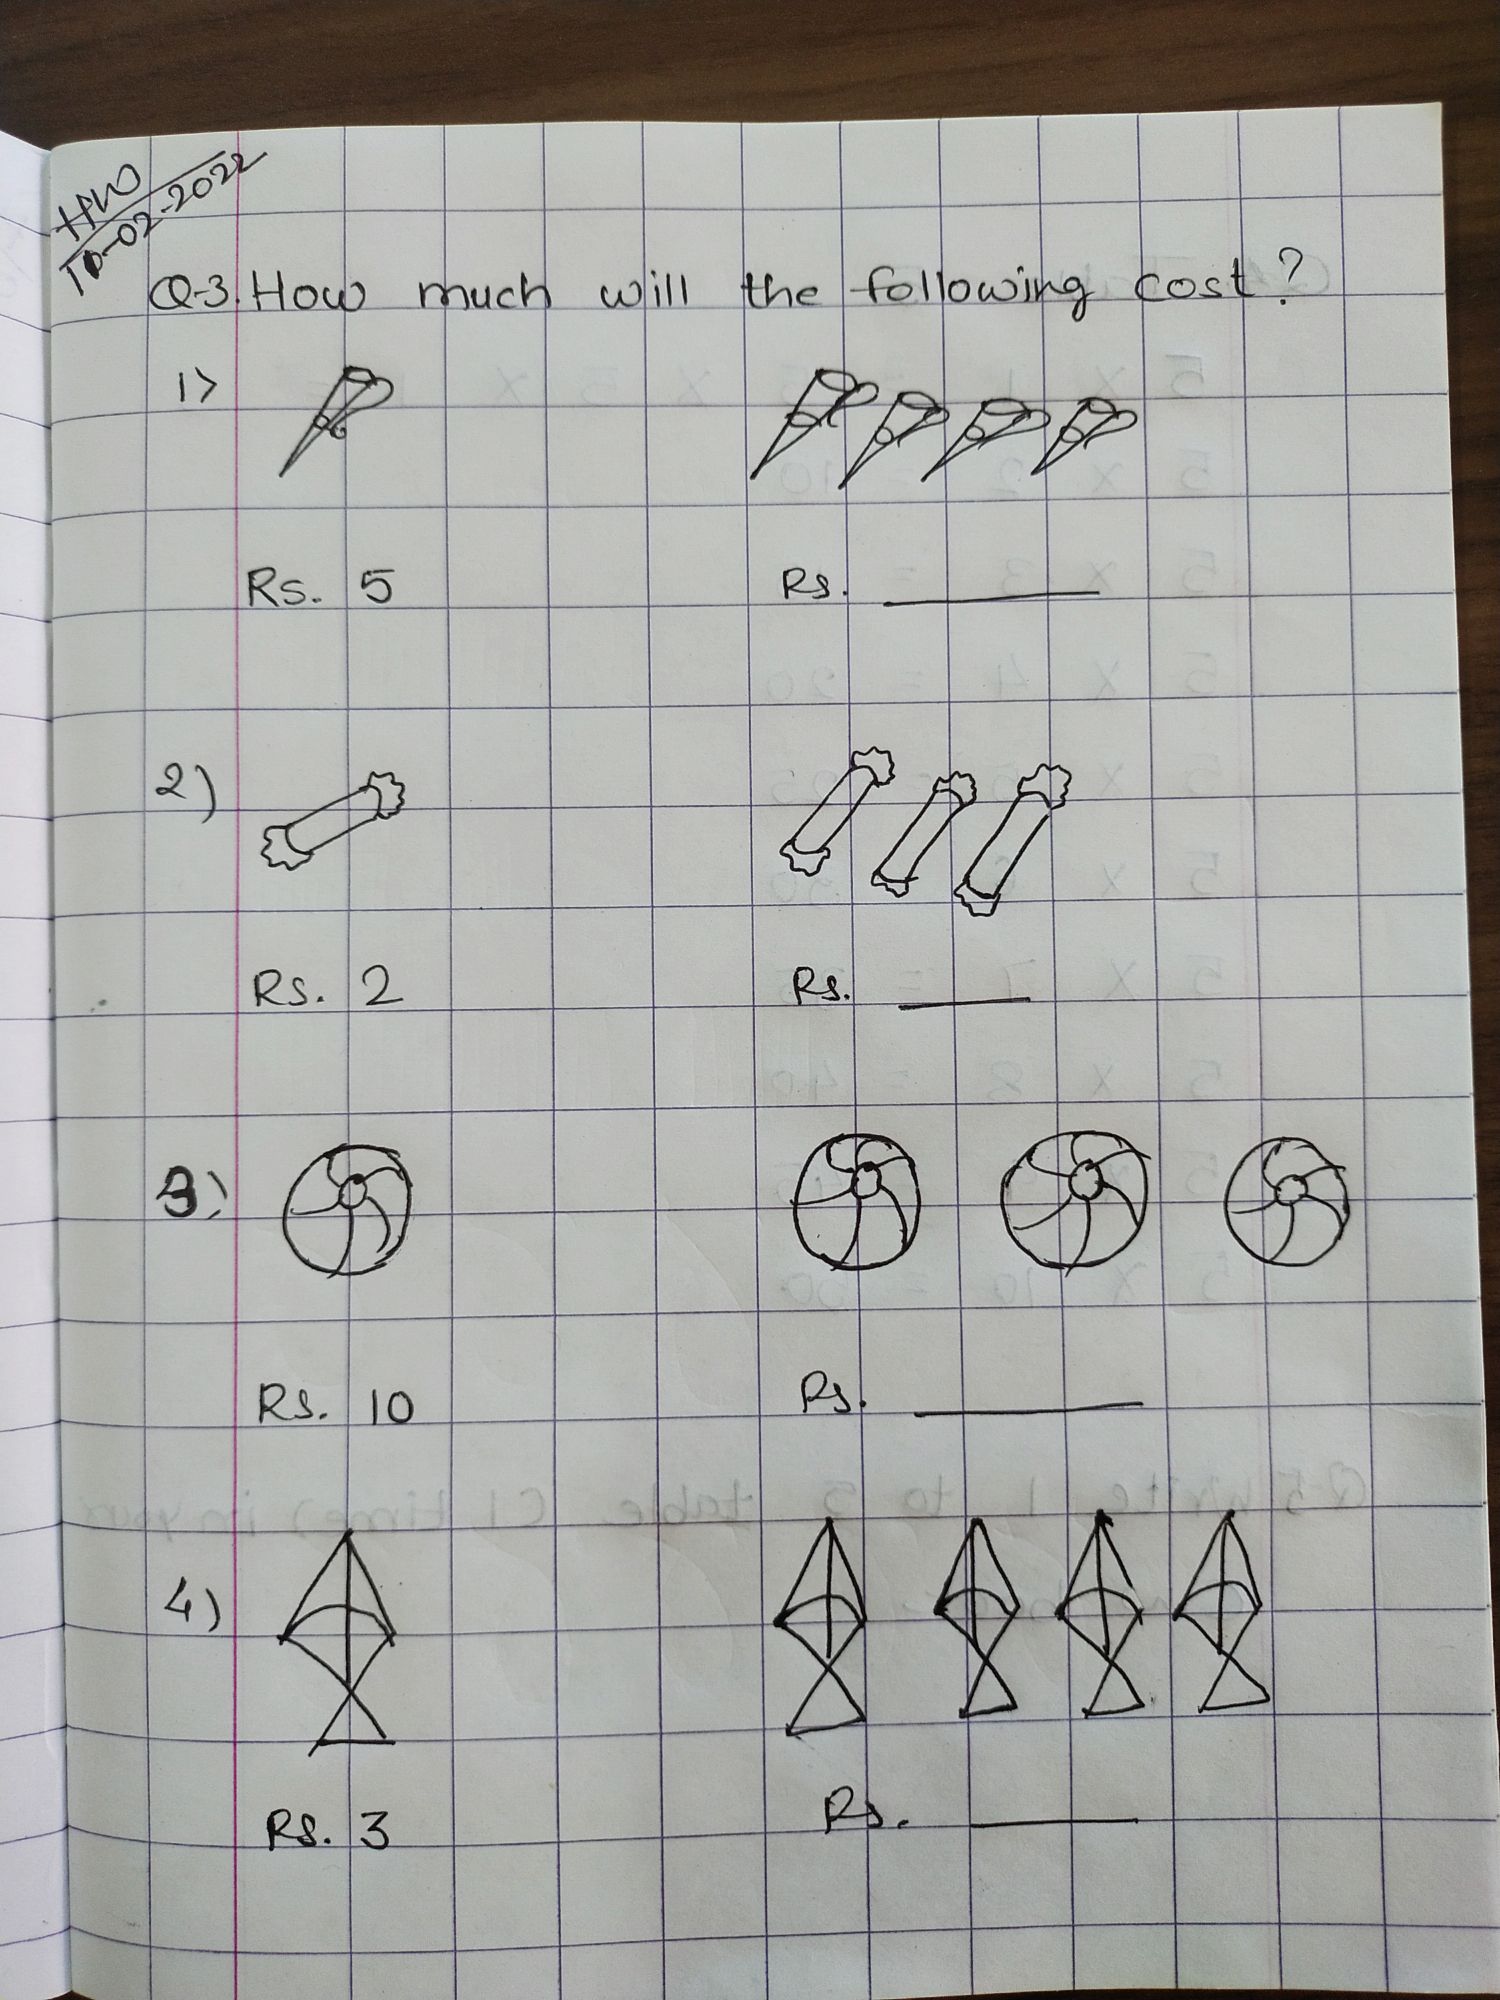 HW
10-02-2022
Q-3. How much will the following cost?
1)
Rs. 5 Rs. ______
2)
Rs. 2 Rs. ______
3)
Rs. 10 Rs. ______
4)
Rs. 3 Rs. ______